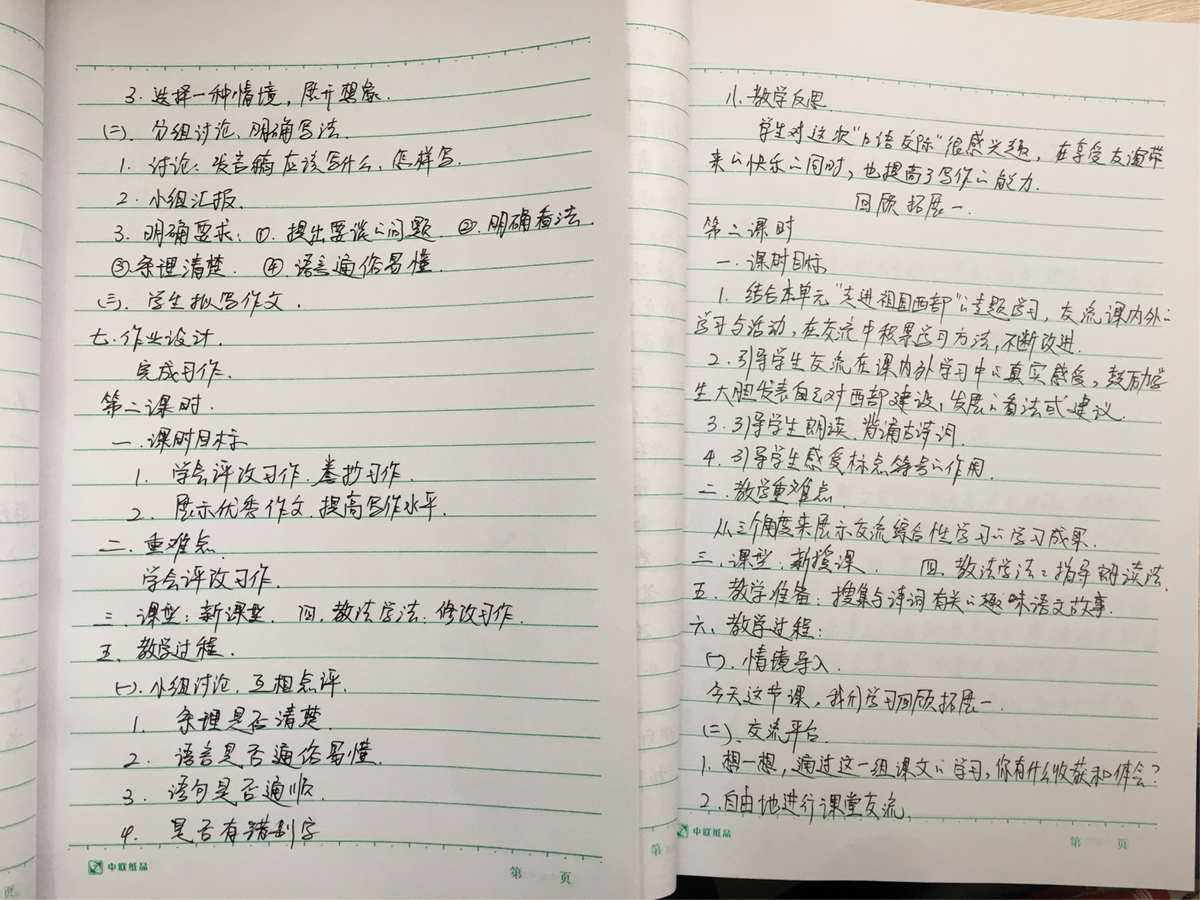 3. 选择一种情境，展开想象.
(二). 分组讨论、明确写法.
1. 讨论：发言稿应该写什么、怎样写.
2. 小组汇报.
3. 明确要求：①. 提出要谈的问题 ②. 明确看法
③.条理清楚. ④ 语言通俗易懂.
(三). 学生拟写作文.
七. 作业设计.
完成习作.
第二课时.
一.课时目标
1. 学会评改习作.誊抄习作.
2. 展示优秀作文.提高写作水平.
二. 重难点
学会评改习作.
三. 课型：新课型. 四. 教法学法：修改习作.
五. 教学过程.
(一).小组讨论.互相点评.
1. 条理是否清楚.
2. 语言是否通俗易懂.
3. 语句是否通顺.
4. 是否有错别字
中欧纸品
第 页
八. 教学反思
学生对这次“口语交际”很感兴趣，在享受友谊带
来的快乐的同时，也提高了写作的能力.
回顾拓展一.
第二课时
一. 课时目标
1. 结合本单元“走进祖国西部”的主题学习，交流课内外的
学习与活动，在交流中积累学习方法，不断改进.
2. 引导学生交流在课内外学习中的真实感受，鼓励学
生大胆发表自己对西部建设，发展的看法或建议.
3. 引导学生朗读.背诵古诗词.
4. 引导学生感受标点符号的作用.
二. 教学重难点
从三个角度来展示交流综合性学习的学习成果.
三. 课型：新授课. 四. 教法学法：指导朗读法.
五. 教学准备：搜集与诗词有关的趣味语文故事.
六. 教学过程：
(一). 情境导入.
今天这节课，我们学习回顾拓展一.
(二). 交流平台.
1. 想一想，通过这一组课文的学习，你有什么收获和体会？
2. 自由地进行课堂交流.
中欧纸品
第 页